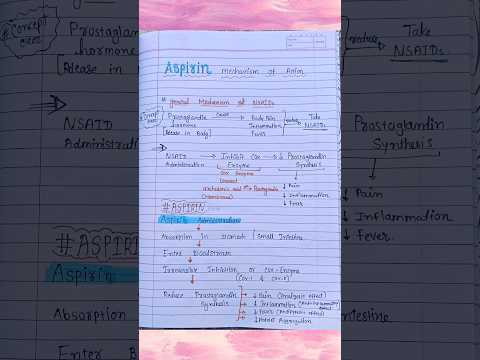 # Concept
Prostaglandin
hormone
[Release in
NSAID
Administration
#ASPIRIN
Aspirin
Absorption
Enter B
Aspirin mechanism of Action
# general Mechanism of NSAIDs
Prostaglandin Cause Body Pain Reduce Take
hormone Inflammation NSAIDs
[Release in Body] Fever
NSAID → Inhibit COX → ↓ Prostaglandin
Administration Enzyme Synthesis
COX Enzyme
Convert
Arachidonic acid → Prostaglandin
(Membrane)
↓ Pain
↓ Inflammation
↓ Fever
#ASPIRIN
Aspirin Administration
Absorption in stomach / Small Intestine
Enter Bloodstream
Irreversible Inhibition of COX-Enzyme
(COX-1 & COX-2)
Reduce Prostaglandin
Synthesis
↓ Pain (Analgesic effect)
↓ Inflammation (Anti-inflammatory effect)
↓ Fever (Antipyretic effect)
↓ Platelet Aggregation
Reduce
Take
NSAIDs
Prostaglandin
Synthesis
↓ Pain
↓ Inflammation
↓ Fever.
Intestine